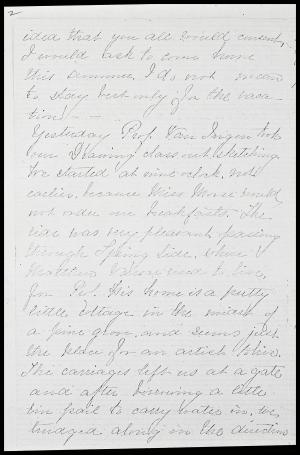 2
idea that you all would consent,
I would ask to come home
this summer. I do not mean
to stay but only for the vaca-
tion. - -
Yesterday Prof. Van Ingen took
our Drawing class out sketching
We started at nine o'clock, not
earlier, because Miss would
not order me breakfast. The
ride was very pleasant passing
through Spring Side, where
Matthew Vassar used to live,
for His home is a pretty
little cottage in the midst of
a pine grove, and seems just
the place for an artist to live.
The carriages left us at a gate
and after borrowing a little
tin pail to carry water in, we
trudged along in the direction